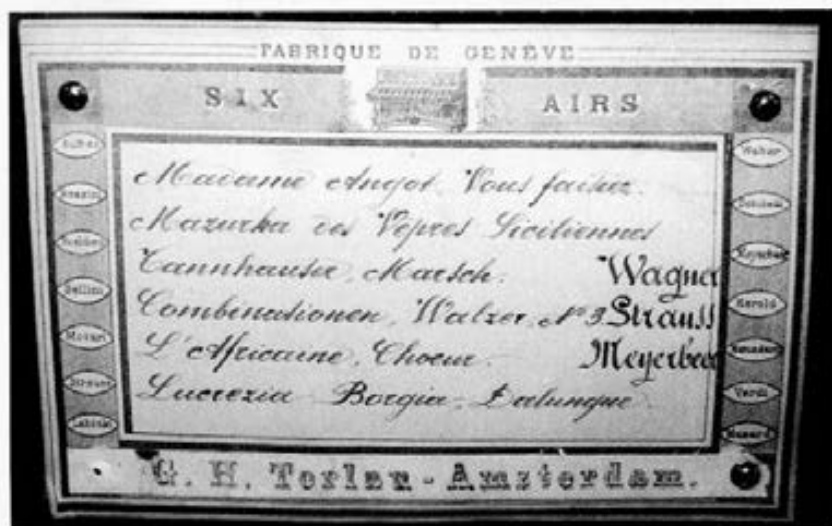 FABRIQUE DE GENÈVE
SIX AIRS
Madame Angot, Vous faisiez.
Mazurka des Vêpres Siciliennes
Tannhauser, Marsch. Wagner
Combinationen, Walzer, No 3. Strauss
L'Africaine, Choeur. Meyerbeer
Lucrezia Borgia,
Auber
Rossini
Bellini
Mozart
Strauss
Labitzki
Weber
Meyerbeer
Herold
Verdi
G. H. Torlen - Amsterdam.